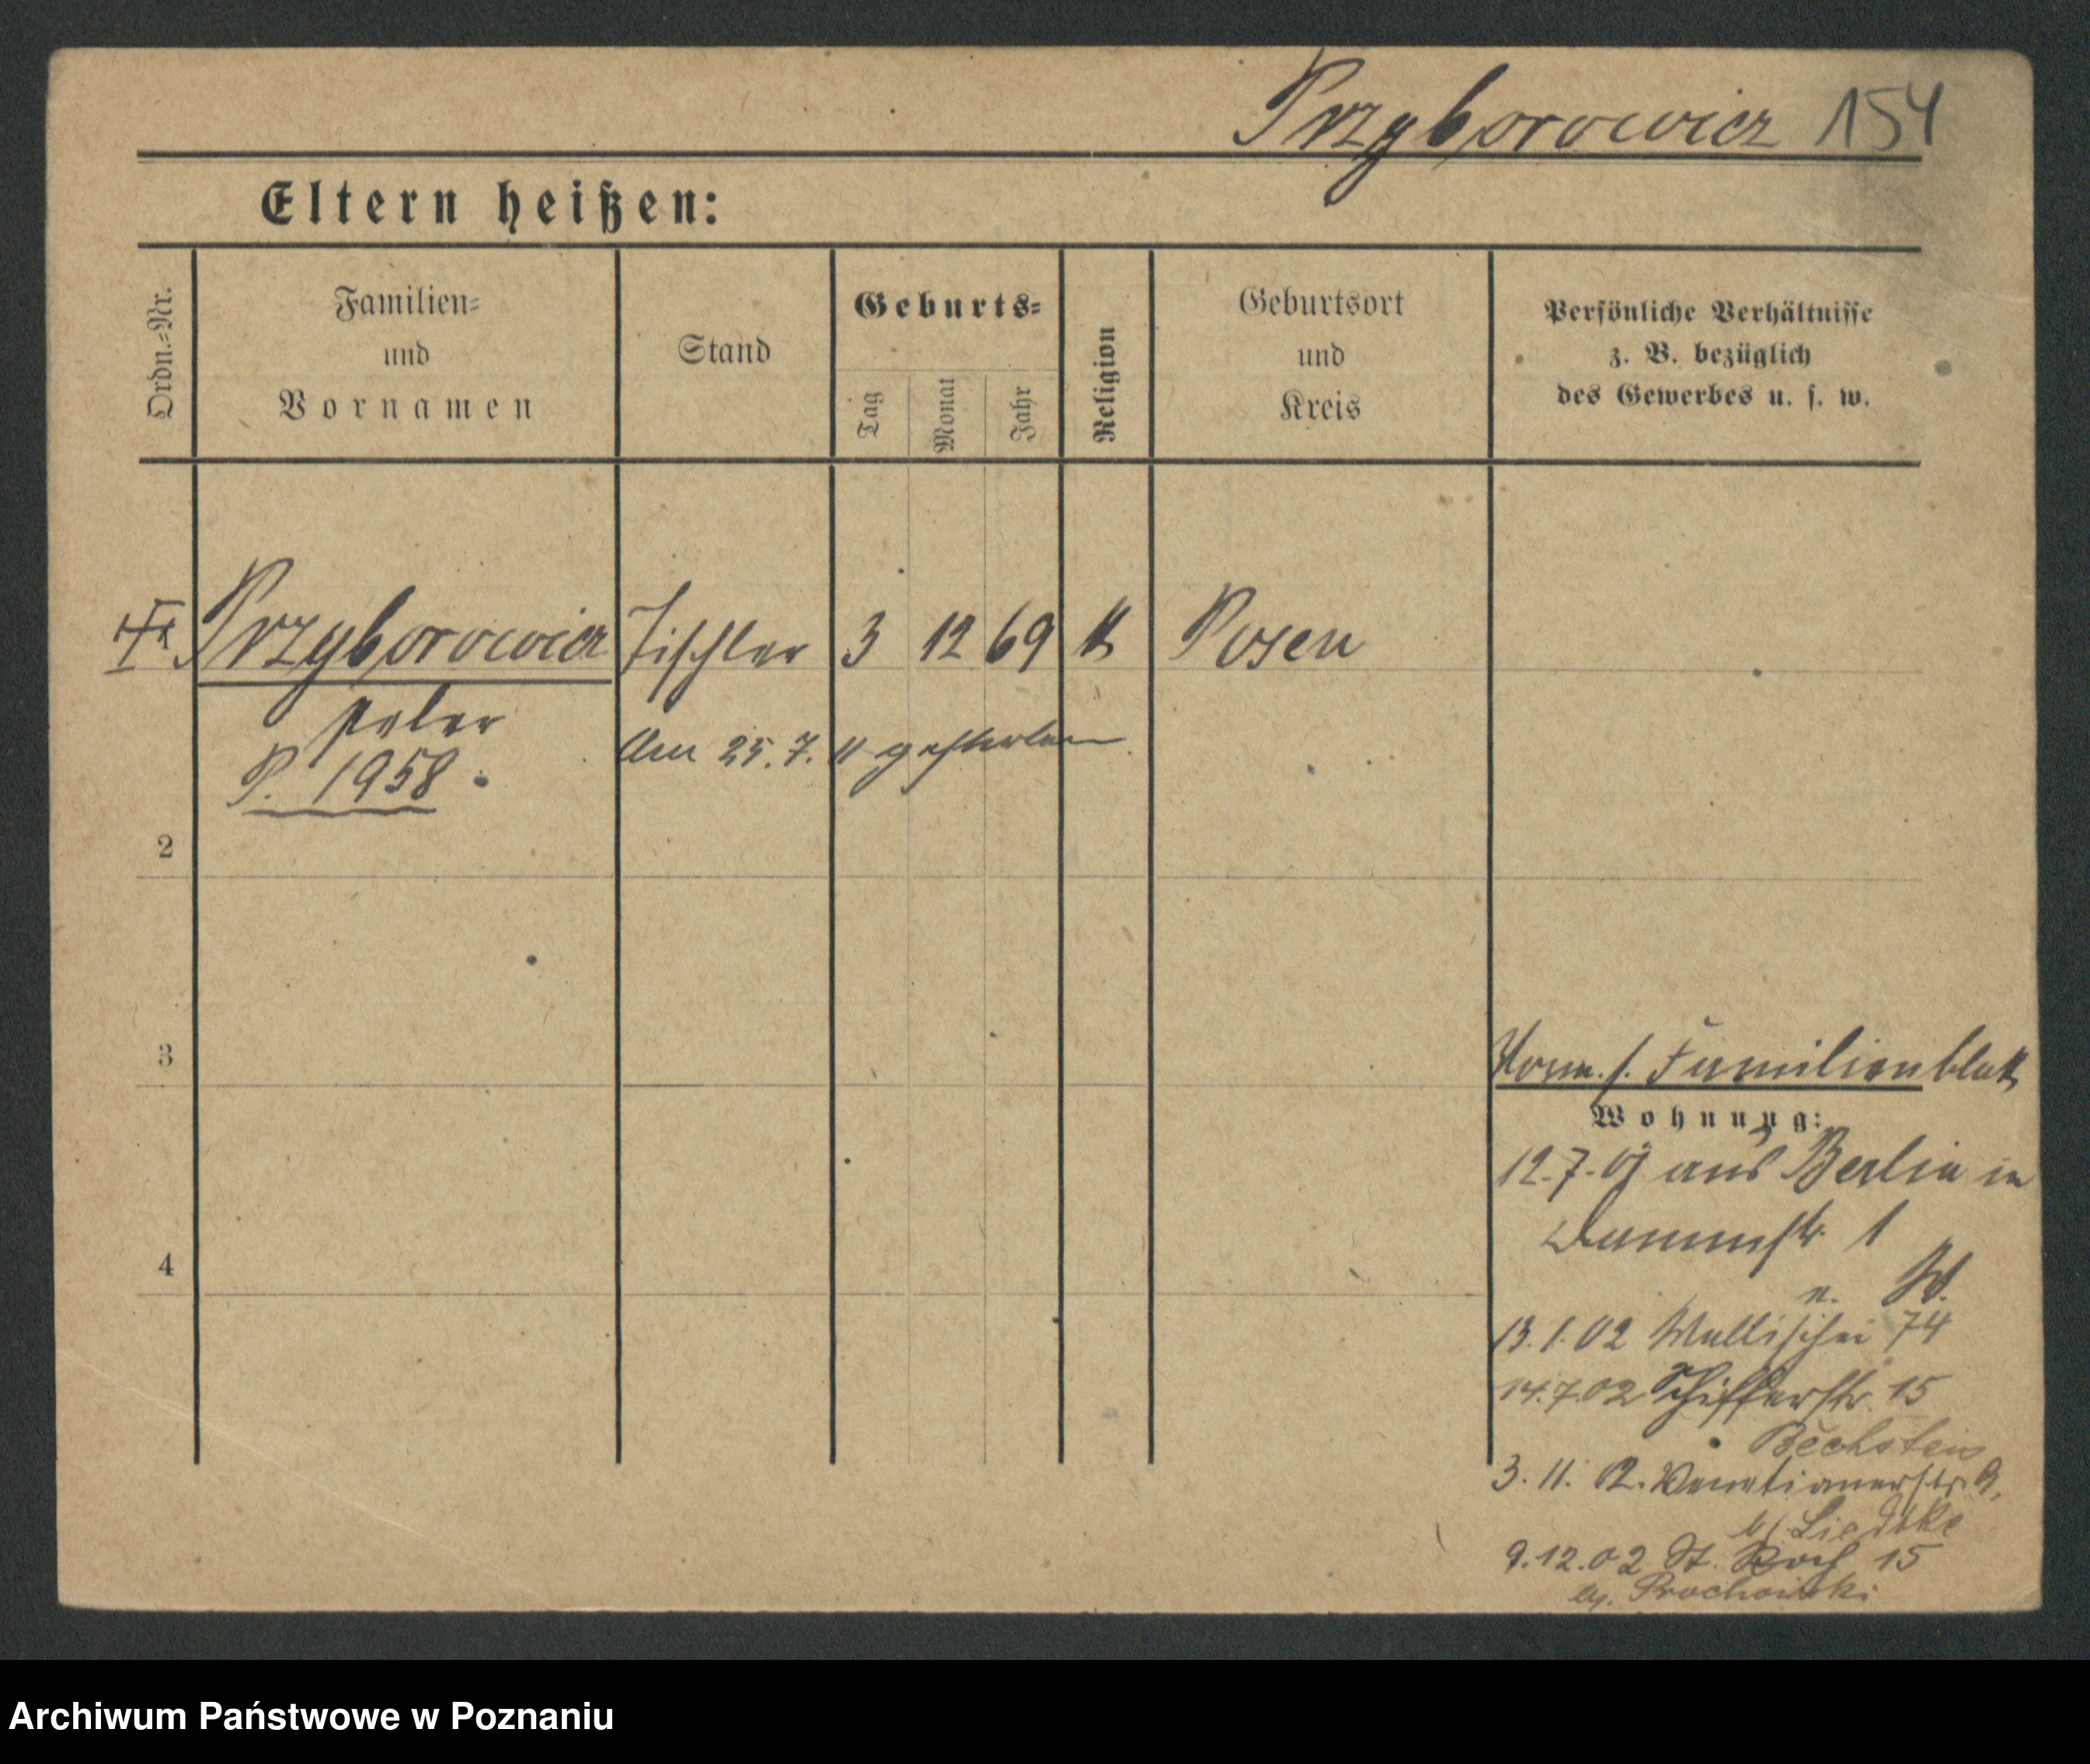 Przyborowicz 154
Eltern heißen:
Ordn.-Nr.
Familien-
und
Vornamen
Stand
Geburts-
Tag
Monat
Jahr
Religion
Geburtsort
und
Kreis
Persönliche Verhältnisse
z. B. bezüglich
des Gewerbes u. s. w.
Przyborowicz Tischler 3 12 69 k Posen
Peter
Am 25. 7. 11 gestorben
P. 1958.
2
3
4
Familienblatt
Wohnung:
12.7.01 aus Berlin in
Dammstr. 1
13.1.02 Wallischei 74
14.7.02 Schifferstr. 15
Bechstein
3. 11. 02. Venetianerstr. 9,
b/ Liedtke
9.12.02 St. Roch 15
Prochowski
Archiwum Państwowe w Poznaniu